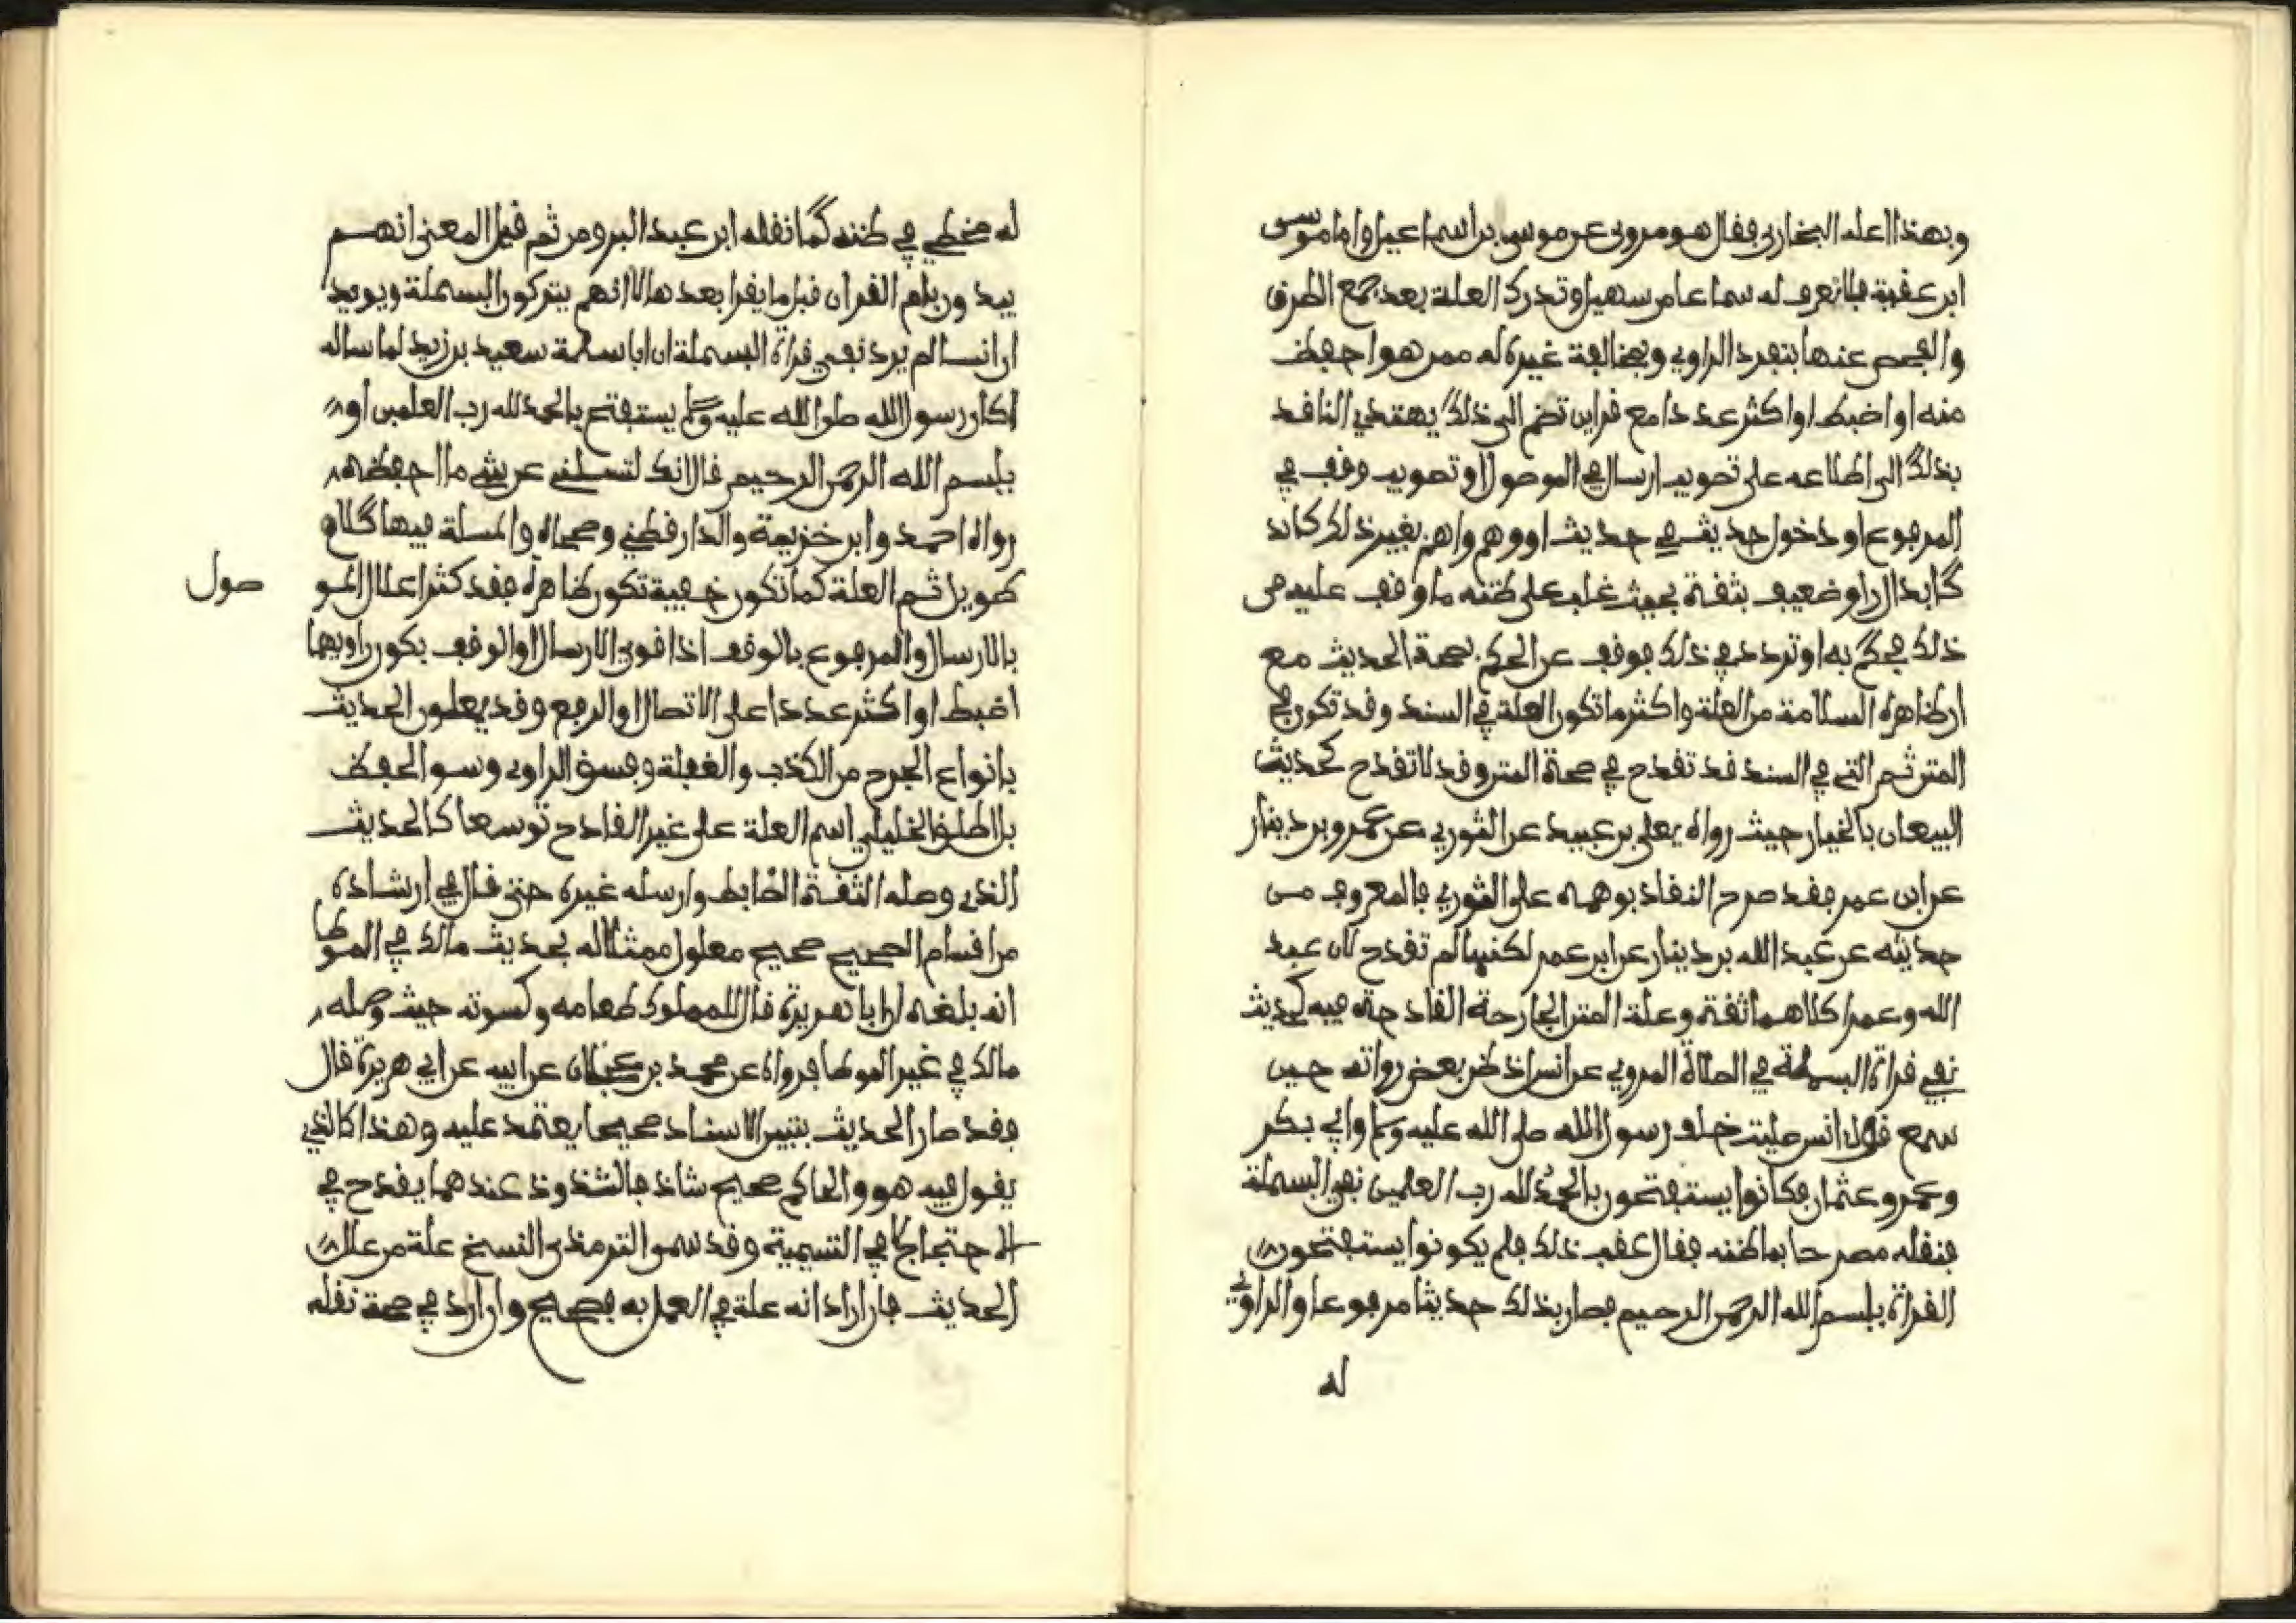 وبهذا اعله البخاري فقال هو مروي عن موسى بن اسماعيل واما موسى
ابن عقبة فلا نعرف له سماعا من سهيل وتدرك العلة بعد جمع الطرق
والفحص عنها بتفرد الراوي وبمخالفة غيره له ممن هو احفظ
منه او اضبط او اكثر عددا مع قراين تضم الى ذلك يهتدي الناقد
بذلك الى اطلاعه على تصويب ارسال في الموصول او تصويب وقف في
المرفوع او دخول حديث في حديث او وهم واهم بغير ذلك كاند
كابدال راو ضعيف بثقة بحيث غلب على ظنه ما وقف عليه من
ذلك فحكم به او تردد في ذلك فوقف عن الحكم بصحة الحديث مع
ان ظاهره السلامة من العلة واكثر ما تكون العلة في السند وقد تكون في
المتن ثم التي في السند قد تقدح في صحة المتن وقد لا تقدح كحديث
البيعان بالخيار حيث رواه يعلى بن عبيد عن الثوري عن عمرو بن دينار
عن ابن عمر فقد صرح النقاد بوهمه على الثوري فالمعروف من
حديثه عن عبد الله بن دينار عن ابن عمر لكنها لم تقدح لان عبد
الله وعمرا كلاهما ثقة وعلة المتن الجارحة القادحة فيه كحديث
نفي قراة البسملة في الصلاة المروي عن انس اذ ظن بعض رواته حين
سمع قول انس صليت خلف رسول الله صلى الله عليه وسلم وابي بكر
وعمر وعثمان فكانوا يستفتحون بالحمد لله رب العلمين نفي البسملة
فنقله مصرحا بما ظنه فقال عقب ذلك فلم يكونوا يستفتحون
القراة ببسم الله الرحمن الرحيم فصار بذلك حديثا مرفوعا والراوي
له
له مخطي في ظنه كما نقله ابن عبد البر ومن ثم قيل المعنى انهم
يبدون بام القران قبل ما يقرا بعدها لا انهم يتركون البسملة ويويد
ان انسا لم يرد نفي قراة البسملة ان ابا سلمة سعيد بن زيد لما ساله
اكان رسول الله صلى الله عليه وسلم يستفتح بالحمد لله رب العلمين او
ببسم الله الرحمن الرحيم قال انك لتسلني عن شي ما احفظه
رواه احمد وابن خزيمة والدارقطني وصححاه والمسلة فيها كلام
طويل ثم العلة كما تكون خفية تكون ظاهرة فقد كثر اعلال المو
صول
بالارسال والمرفوع بالوقف اذا قوي الارسال او الوقف بكون راويهما
اضبط او اكثر عددا على الاتصال او الرفع وقد يعلون الحديث
بانواع الجرح من الكذب والغفلة وفسق الراوي وسو الحفظ
بل اطلق الخليلي اسم العلة على غير القادح توسعا كالحديث
الذي وصله الثقة الضابط وارسله غيره حتى قال في ارشاده
من اقسام الصحيح صحيح معلول ممثلا له بحديث مالك في الموطا
انه بلغه ان ابا هريرة قال للمملوك طعامه وكسوته حيث وصله
مالك في غير الموطا فرواه عن محمد بن عجلان عن ابيه عن ابي هريرة قال
فقد صار الحديث بتبين الاسناد صحيحا يعتمد عليه وهذا كالذي
يقول فيه هو والحاكم صحيح شاذ فالشذوذ عندهما يقدح في
الاحتجاج لا في التسمية وقد سمى الترمذي النسخ علة من علل
الحديث فان اراد انه علة في العمل به فصحيح وان اراد في صحة نقله